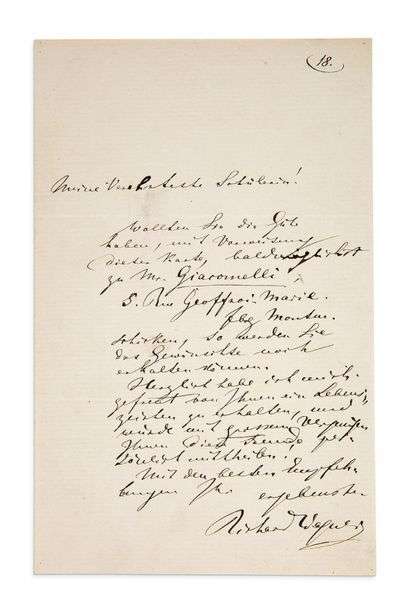 18.
Meine Verehrteste Schülerin!
Wollten Sie die Güte
haben, mit Vorweisung
dieser Karte, baldmöglichst
zu Mr. Giacomelli
5. Rue Geoffroi-Marie.
fbg Montm.
schicken, so werden Sie
das Gewünschte noch
erhalten können.
Herzlich habe ich mich
gefreut von Ihnen ein Lebens-
zeichen zu erhalten, und
würde mit grossem Vergnügen
Ihnen diese Freude per-
sönlich mittheilen.
Mit den besten Empfeh-
lungen Ihr
ergebenster
Richard Wagner